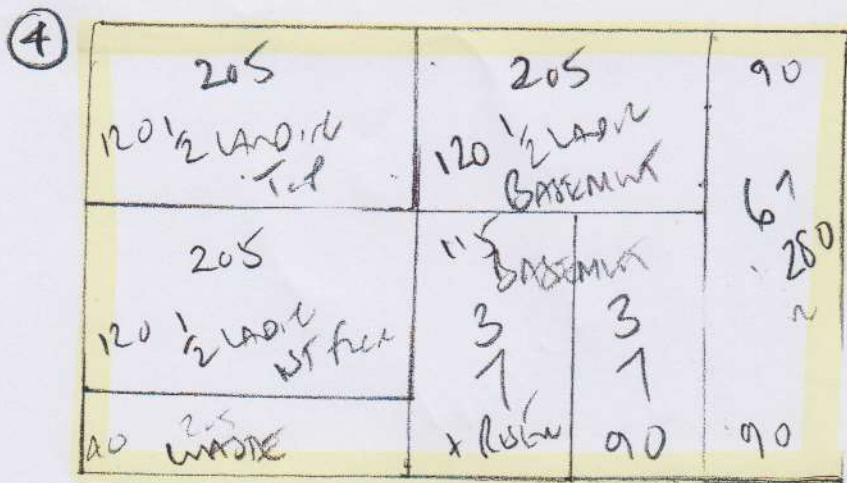 4
205
120 1/2 LANDING
TOP
205
120 1/2 LANDING
BASEMENT
90
6↑
280
205
120 1/2 LANDING
1ST FLOOR
115
BASEMENT
3 3
1 1
+ RISER 90
90
40 205
WASTE